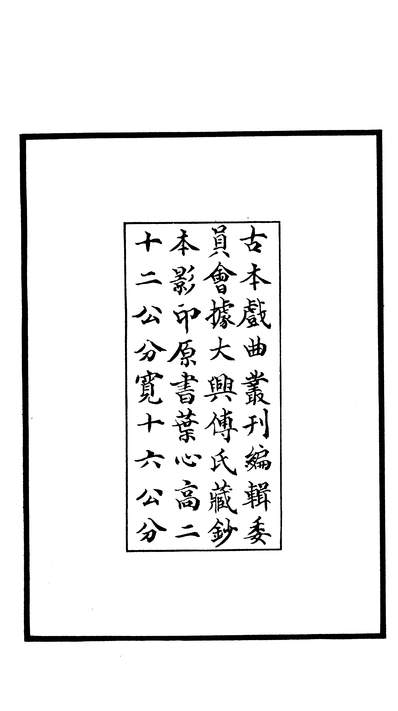 古本戲曲叢刊編輯委
員會據大興傅氏藏鈔
本影印原書葉心高二
十二公分寬十六公分